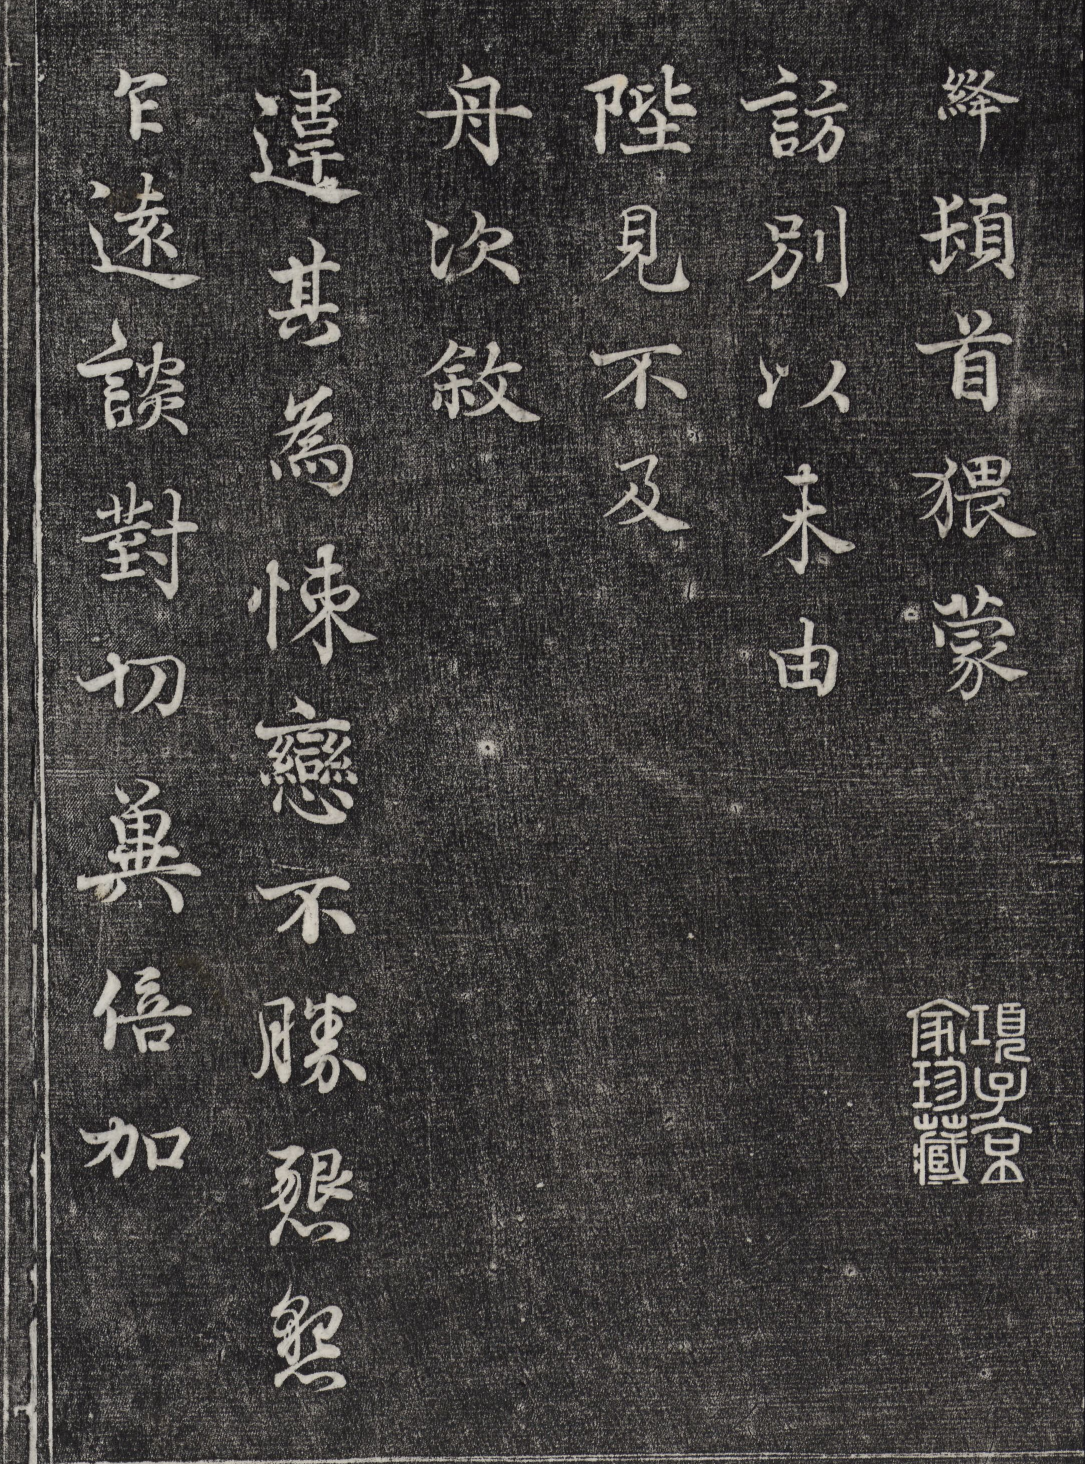 絳頓首猥蒙
訪別以未由
陛見不及
舟次敘
違其為悚戀不勝懇懇
乍遠談對切冀倍加
項子京
家珍藏